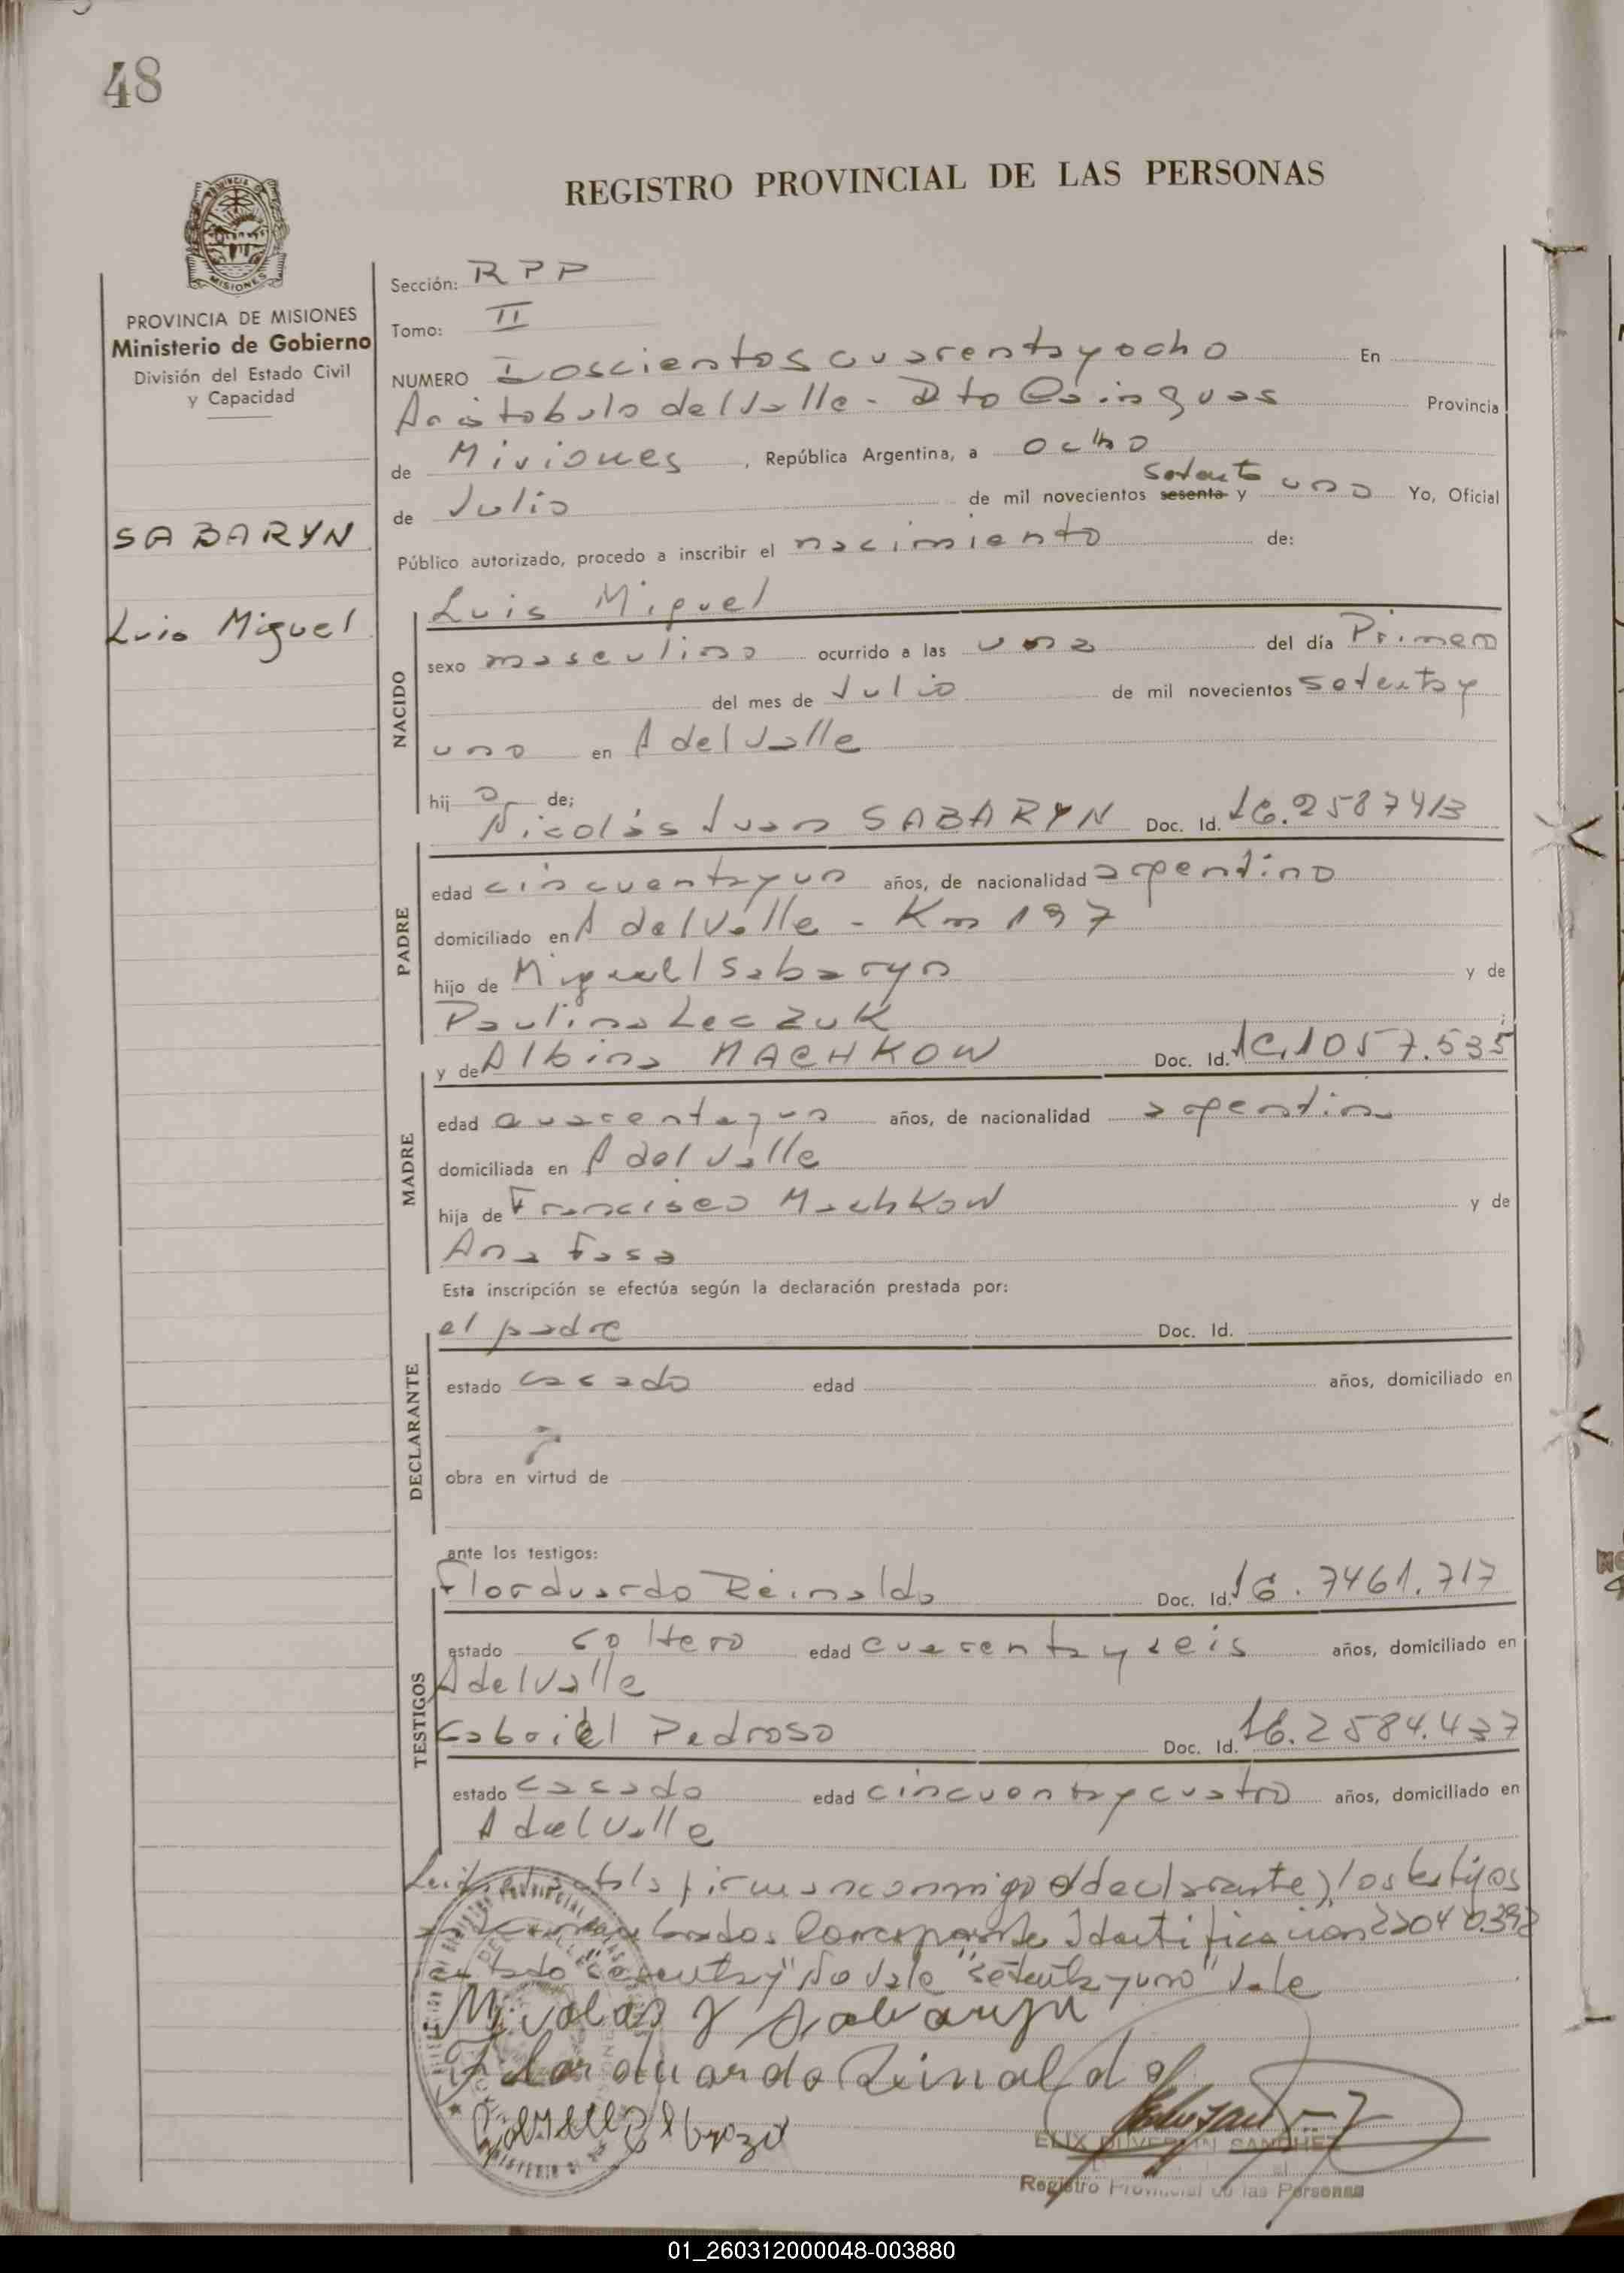 48
REGISTRO PROVINCIAL DE LAS PERSONAS
PROVINCIA DE MISIONES
Ministerio de Gobierno
División del Estado Civil
y Capacidad
SABARYN
Luis Miguel
Sección: RPP
Tomo: II
NUMERO Doscientos cuarenta y ocho En
Aristobulo del Valle - Dto Cainguas Provincia
de Misiones, República Argentina, a ocho
setenta
de Julio de mil novecientos sesenta y uno Yo, Oficial
Público autorizado, procedo a inscribir el nacimiento de:
NACIDO
Luis Miguel
sexo masculino ocurrido a las una del día Primero
del mes de Julio de mil novecientos setenta y
uno en A del Valle
hij o de;
PADRE
Nicolás Juan SABARYN Doc. Id.
edad cincuenta y un años, de nacionalidad argentino
domiciliado en A del Valle - Km 197
hijo de Miguel Sabaryn y de
Paulina Leczuk ;
MADRE
y de Albina MACHKOW Doc. Id. 1057.535
edad cuarenta y un años, de nacionalidad argentina
domiciliada en A del Valle
hija de Francisco Machkow y de
Ana Fasa
Esta inscripción se efectúa según la declaración prestada por:
DECLARANTE
el padre Doc. Id.
estado casado edad años, domiciliado en
obra en virtud de
ante los testigos:
TESTIGOS
Florduardo Reinaldo Doc. Id. 7461.717
estado soltero edad cuarenta y seis años, domiciliado en
A del Valle
Gabriel Pedroso Doc. Id. 2584.437
estado casado edad cincuenta y cuatro años, domiciliado en
A del Valle
Leida el acta la firman conmigo el declarante y los testigos
Corresponde Identificacion
"sesenta y" No vale "setenta y uno" Vale
Nicolas J Sabaryn
Florduardo Reinaldo
SANCHEZ
Registro Provincial de las Personas
01_260312000048-003880